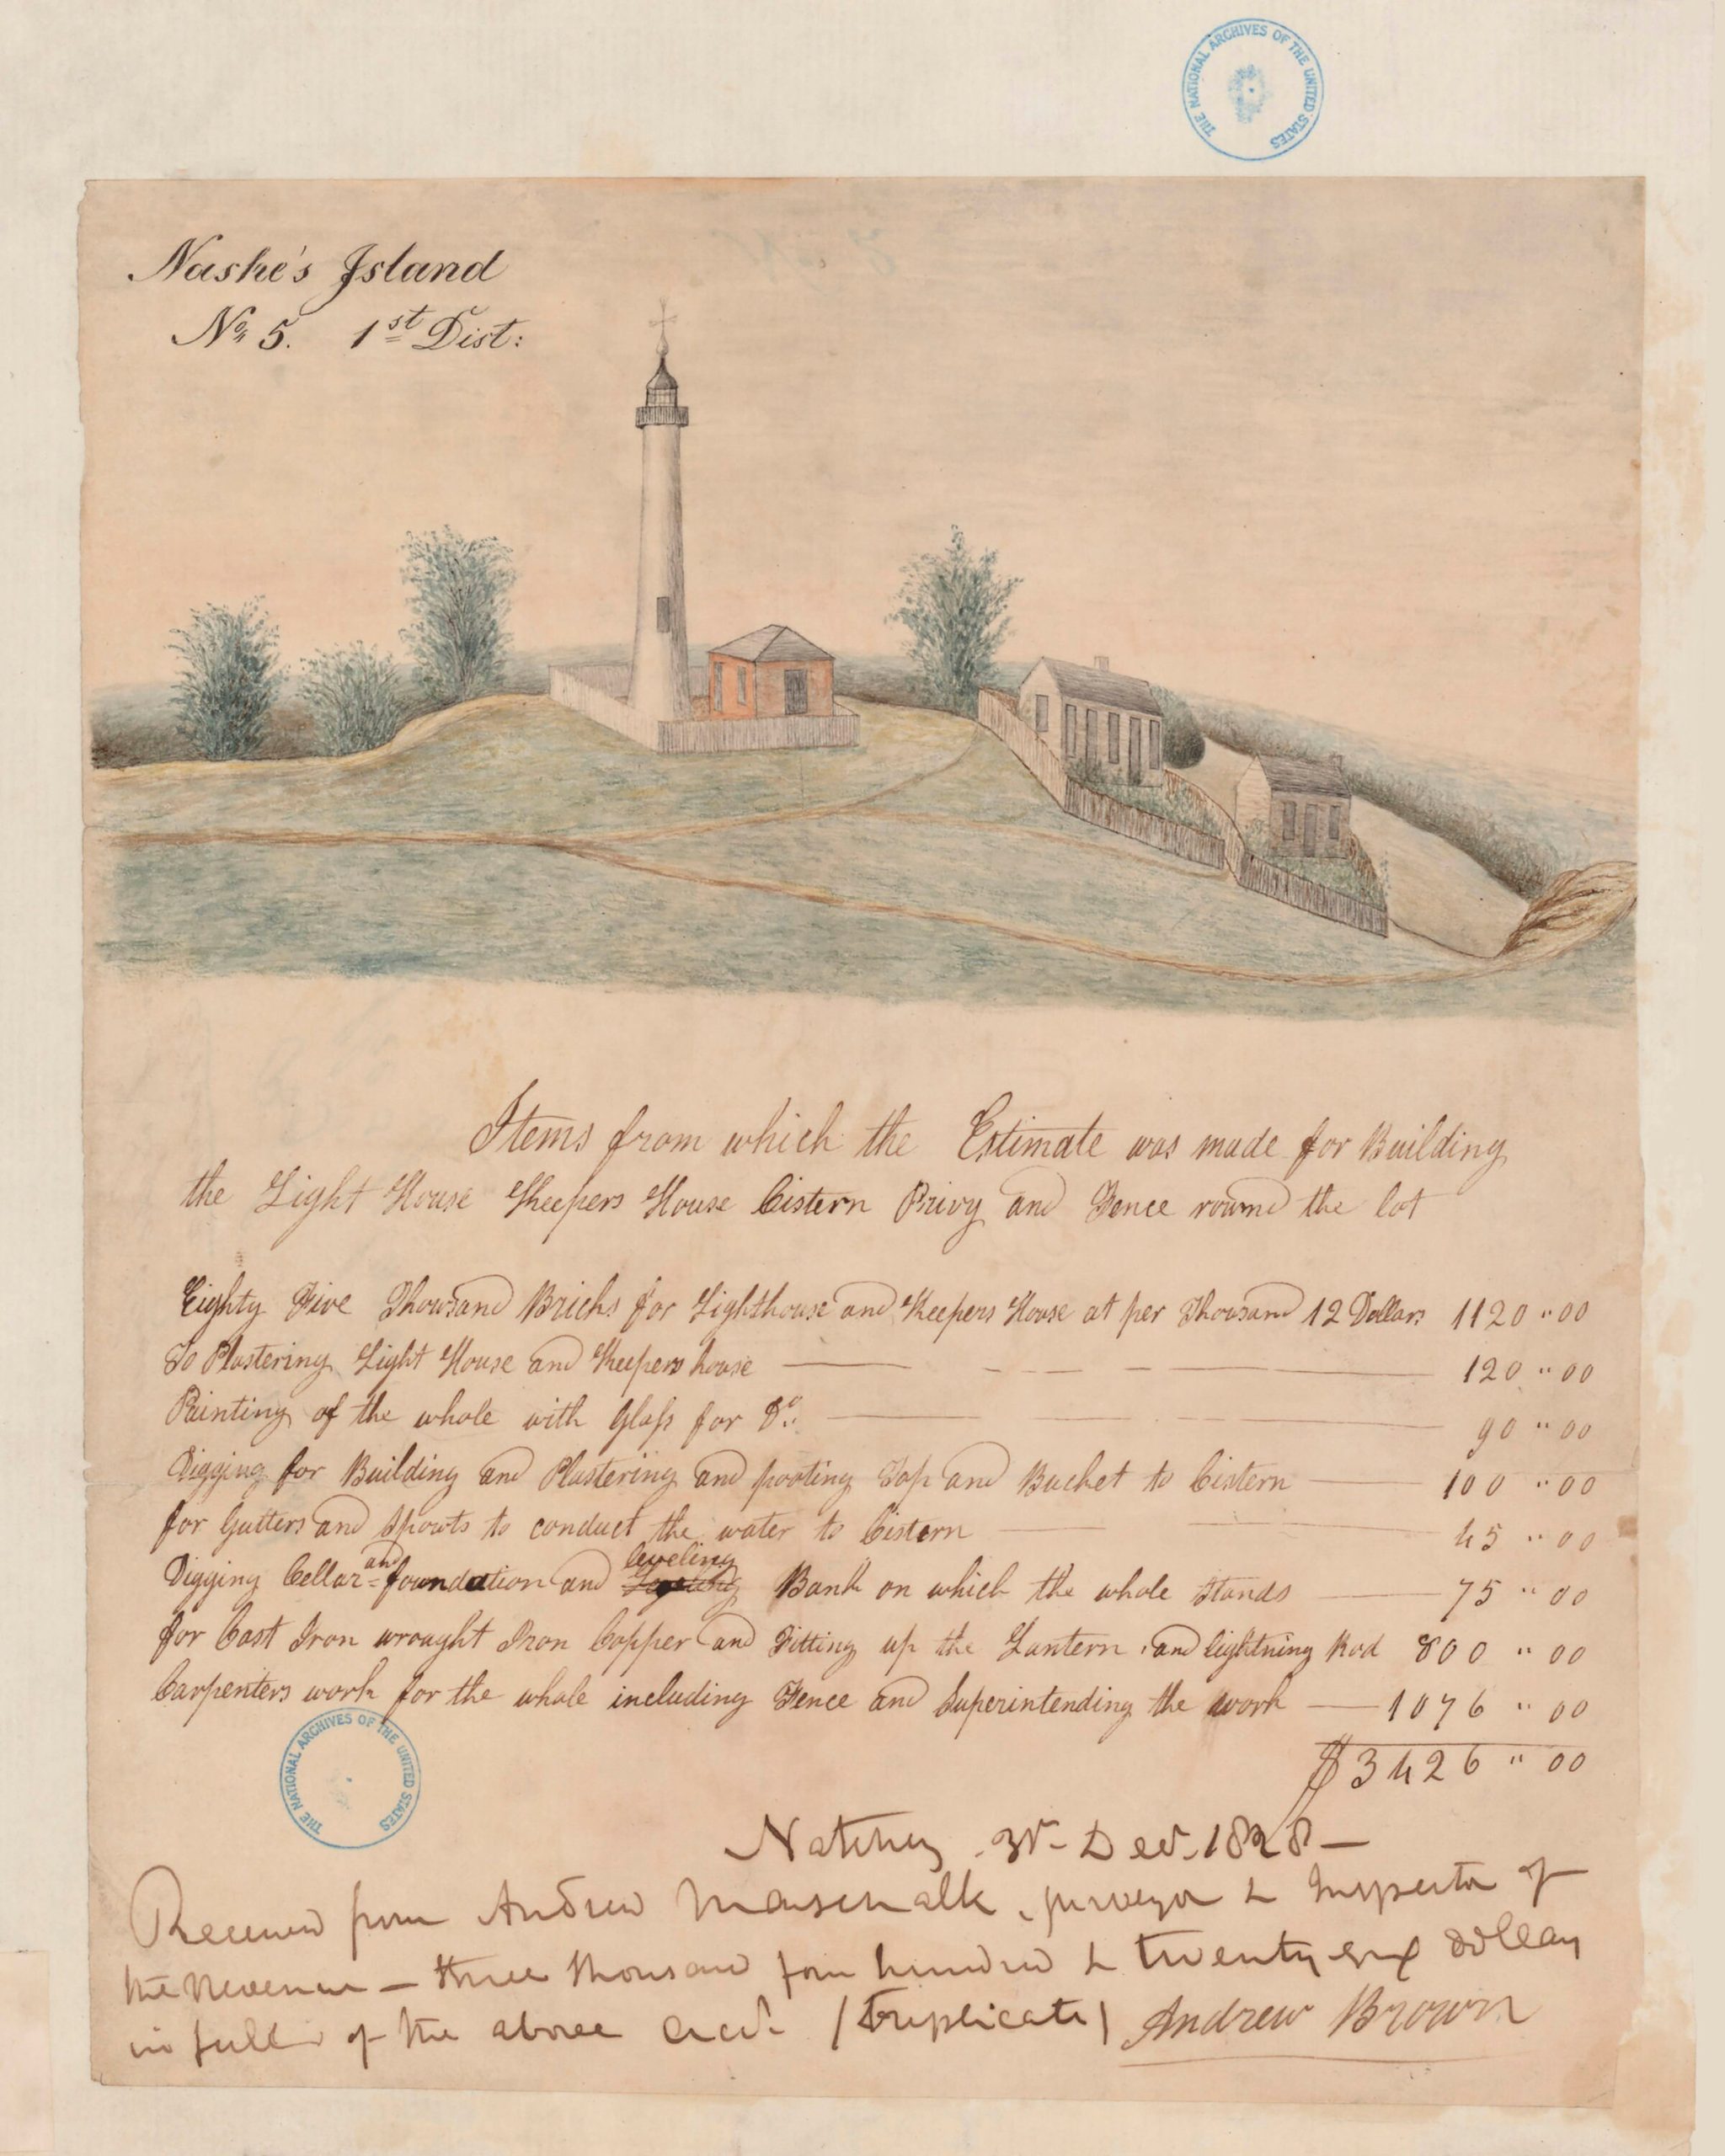 THE NATIONAL ARCHIVES OF THE UNITED STATES
Nashe's Island
No 5. 1st Dist:
Items from which the Estimate was made for Building
the Light House Keepers House Cistern Privy and Fence round the lot
Eighty Five Thousand Bricks for Lighthouse and Keepers House at per Thousand 12 Dollars 1120 " 00
To Plastering Light House and Keepers house 120 " 00
Painting of the whole with Glass for Do. 90 " 00
Digging for Building and Plastering and Top and Bucket to Cistern 100 " 00
for Gutters and Spouts to conduct the water to Cistern 45 " 00
Digging Cellar and foundation and leveling Bank on which the whole stands 75 " 00
for Cast Iron wrought Iron Copper and Fitting up the Lantern and lightning Rod 800 " 00
Carpenters work for the whole including Fence and Superintending the work 1076 " 00
$3426 " 00
THE NATIONAL ARCHIVES OF THE UNITED STATES
Natchez Decr. 1828 —
Received from Andrew Marschalk, surveyor & Inspector of
the Revenue — three thousand four hundred & twenty six dollars
in full of the above acct. (triplicate) Andrew Brown